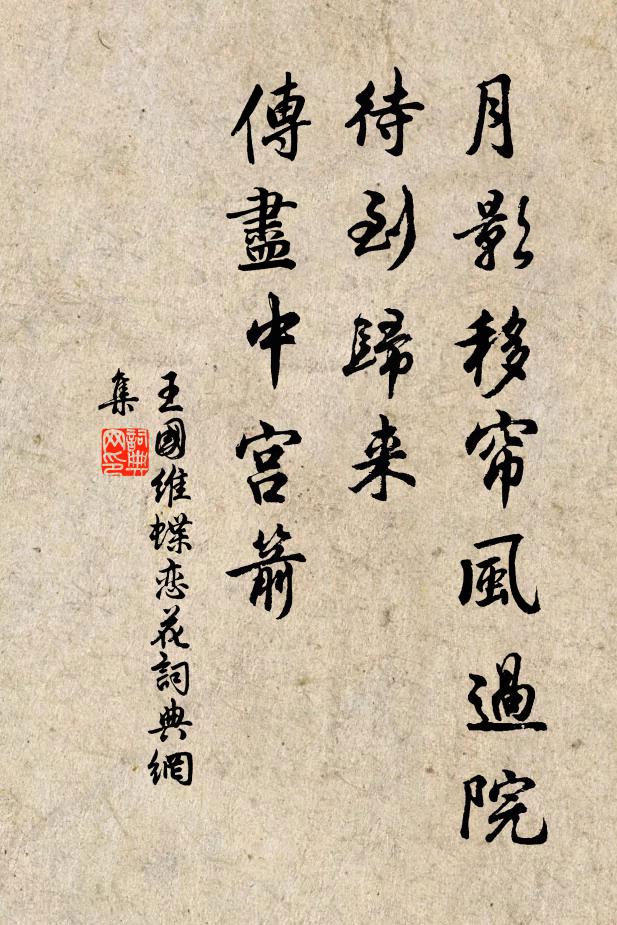 月影移帘風過院
待到歸来
傳盡中宫箭
王國維蝶恋花詞典網
集
詞典
网印